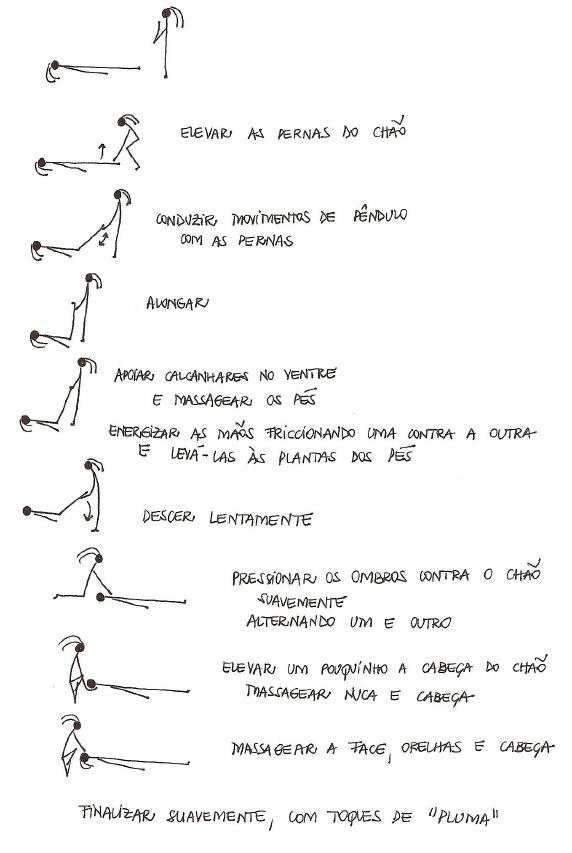 ELEVAR AS PERNAS DO CHÃO
CONDUZIR MOVIMENTOS DE PÊNDULO
COM AS PERNAS
ALONGAR
APOIAR CALCANHARES NO VENTRE
E MASSAGEAR OS PÉS
ENERGIZAR AS MÃOS FRICCIONANDO UMA CONTRA A OUTRA
E LEVÁ-LAS ÀS PLANTAS DOS PÉS
DESCER LENTAMENTE
PRESSIONAR OS OMBROS CONTRA O CHÃO
SUAVEMENTE
ALTERNANDO UM E OUTRO
ELEVAR UM POUQUINHO A CABEÇA DO CHÃO
MASSAGEAR NUCA E CABEÇA
MASSAGEAR A FACE, ORELHAS E CABEÇA
FINALIZAR SUAVEMENTE, COM TOQUES DE "PLUMA"